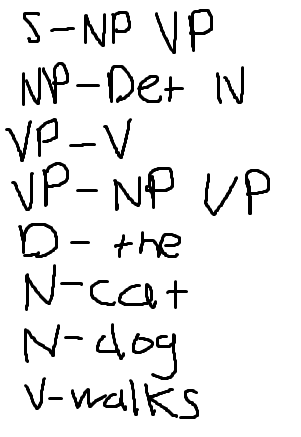 S-NP VP
NP-Det N
VP-V
VP-NP VP
D-the
N-cat
N-dog
V-walks